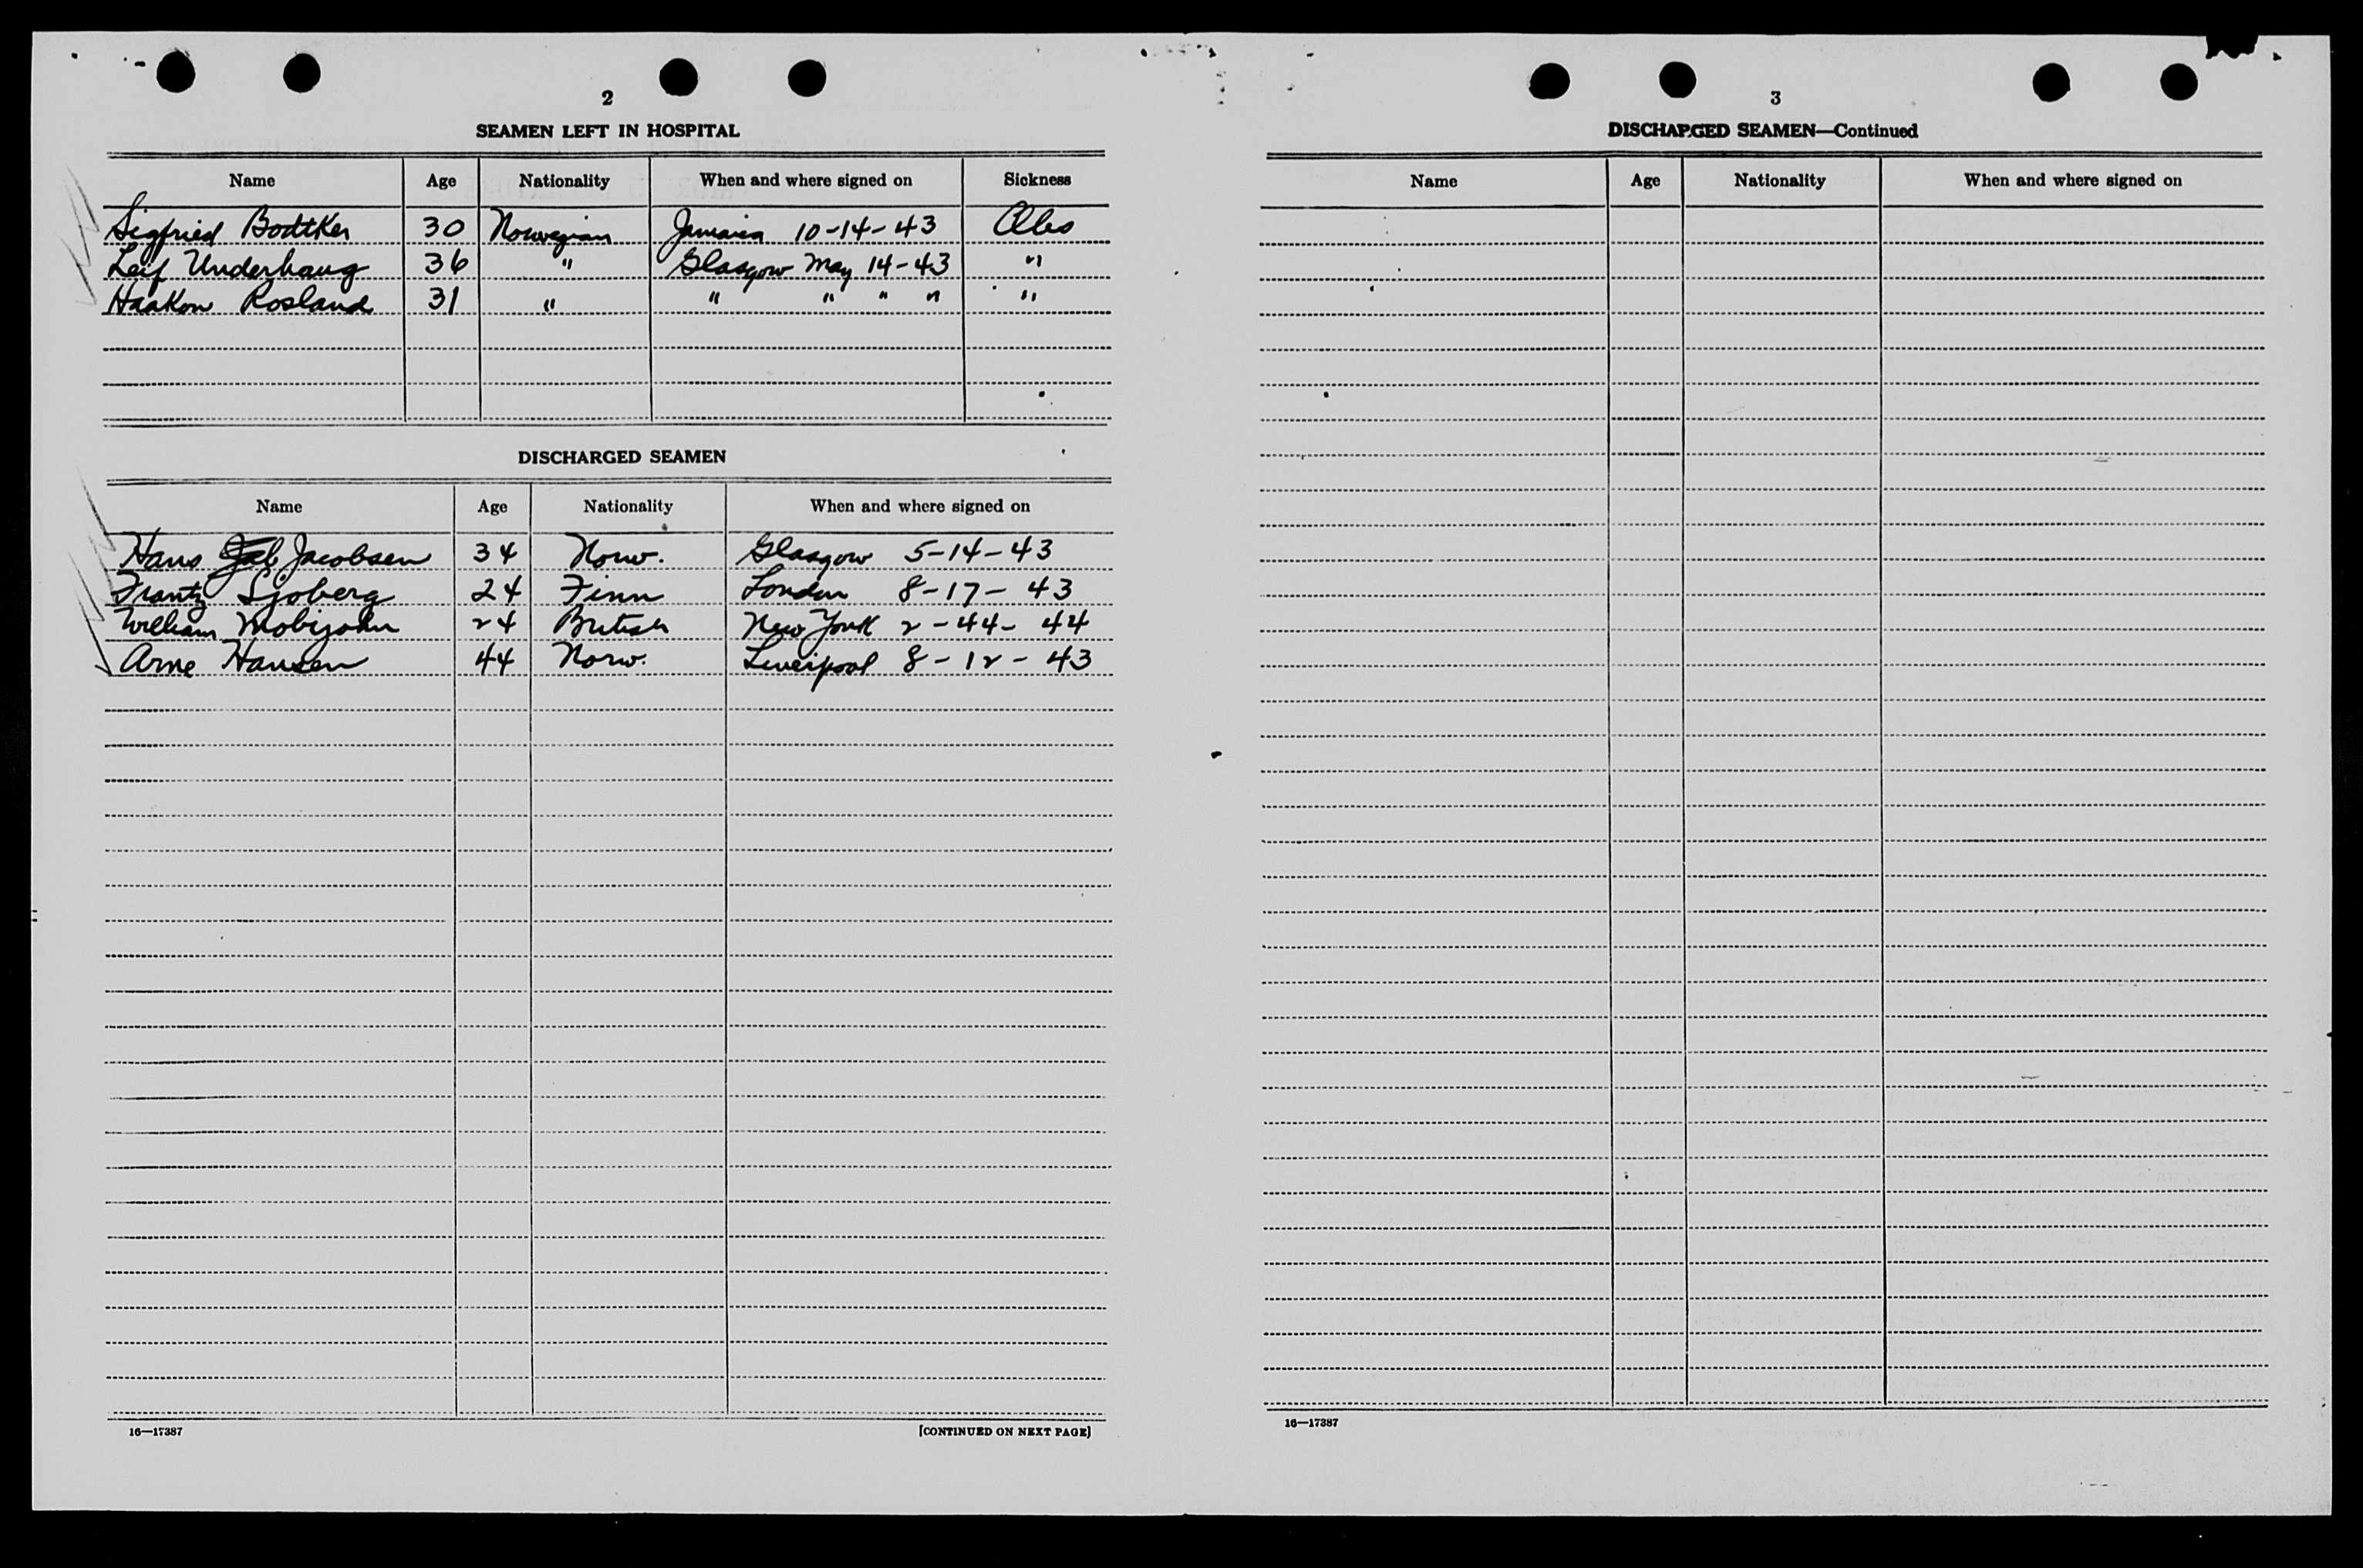 2
SEAMEN LEFT IN HOSPITAL
Name Age Nationality When and where signed on Sickness
Sigfried Bodtker 30 Norwegian Jamaica 10-14-43
Leif Underhaug 36 " Glasgow May 14-43 "
Haakon Rosland 31 " " " " " "
DISCHARGED SEAMEN
Name Age Nationality When and where signed on
Hans Jacobsen 34 Norw. Glasgow 5-14-43
Frantz Sjoberg 24 Finn London 8-17-43
William Mobijohn 24 British New York 2-44-44
Arne Hansen 44 Norw. Liverpool 8-12-43
16—17387 [CONTINUED ON NEXT PAGE]
3
DISCHARGED SEAMEN—Continued
Name Age Nationality When and where signed on
16—17387